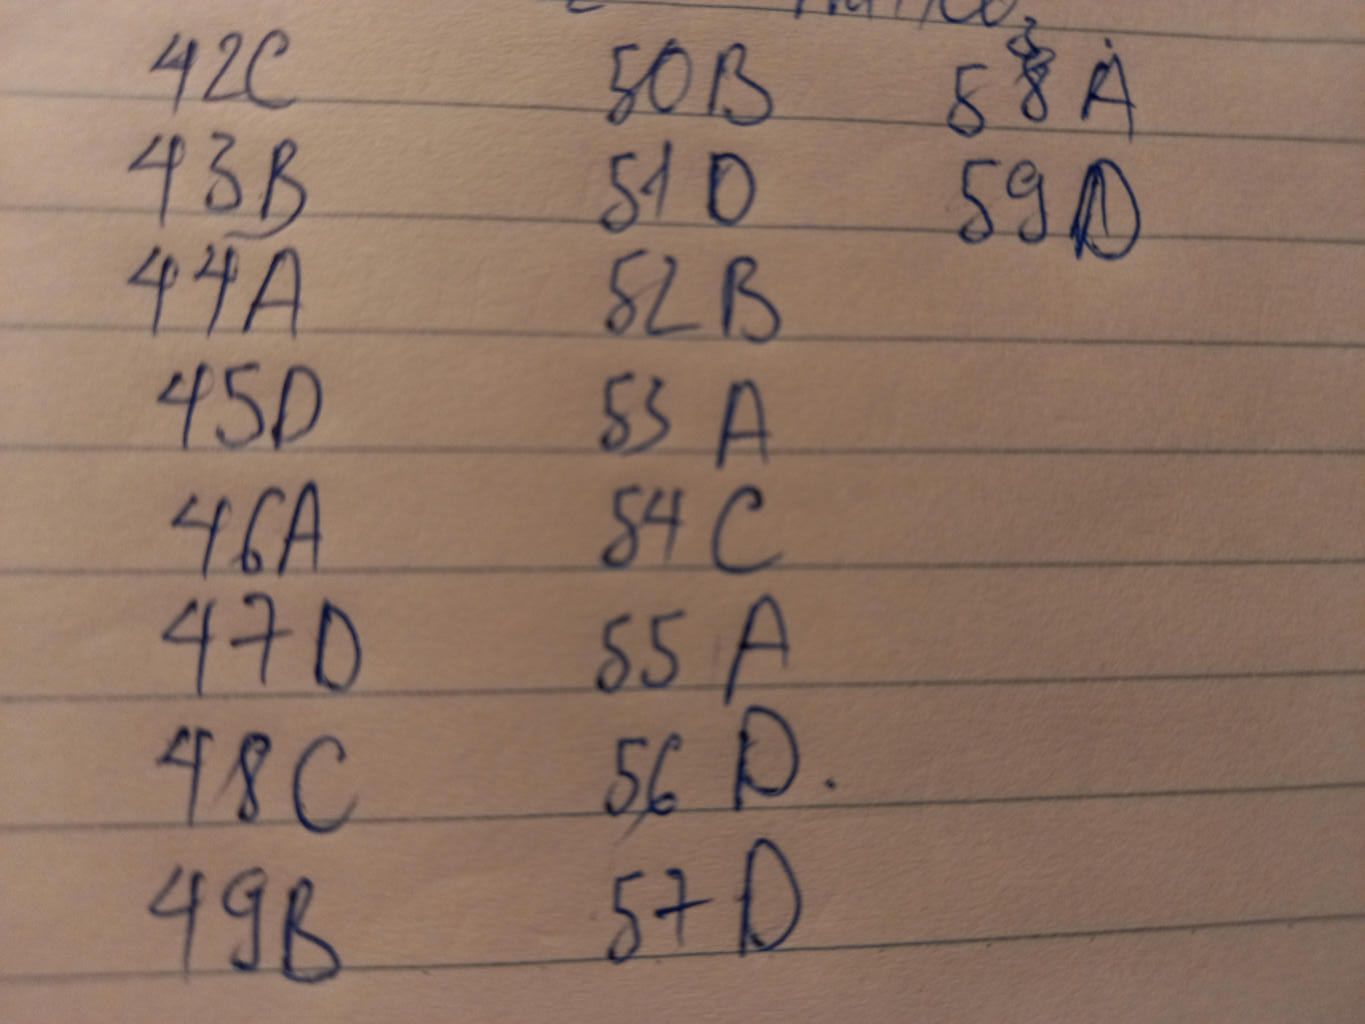 42C
43B
44A
45D
46A
47D
48C
49B
50B
51D
52B
53A
54C
55A
56D.
57D
58A
59D